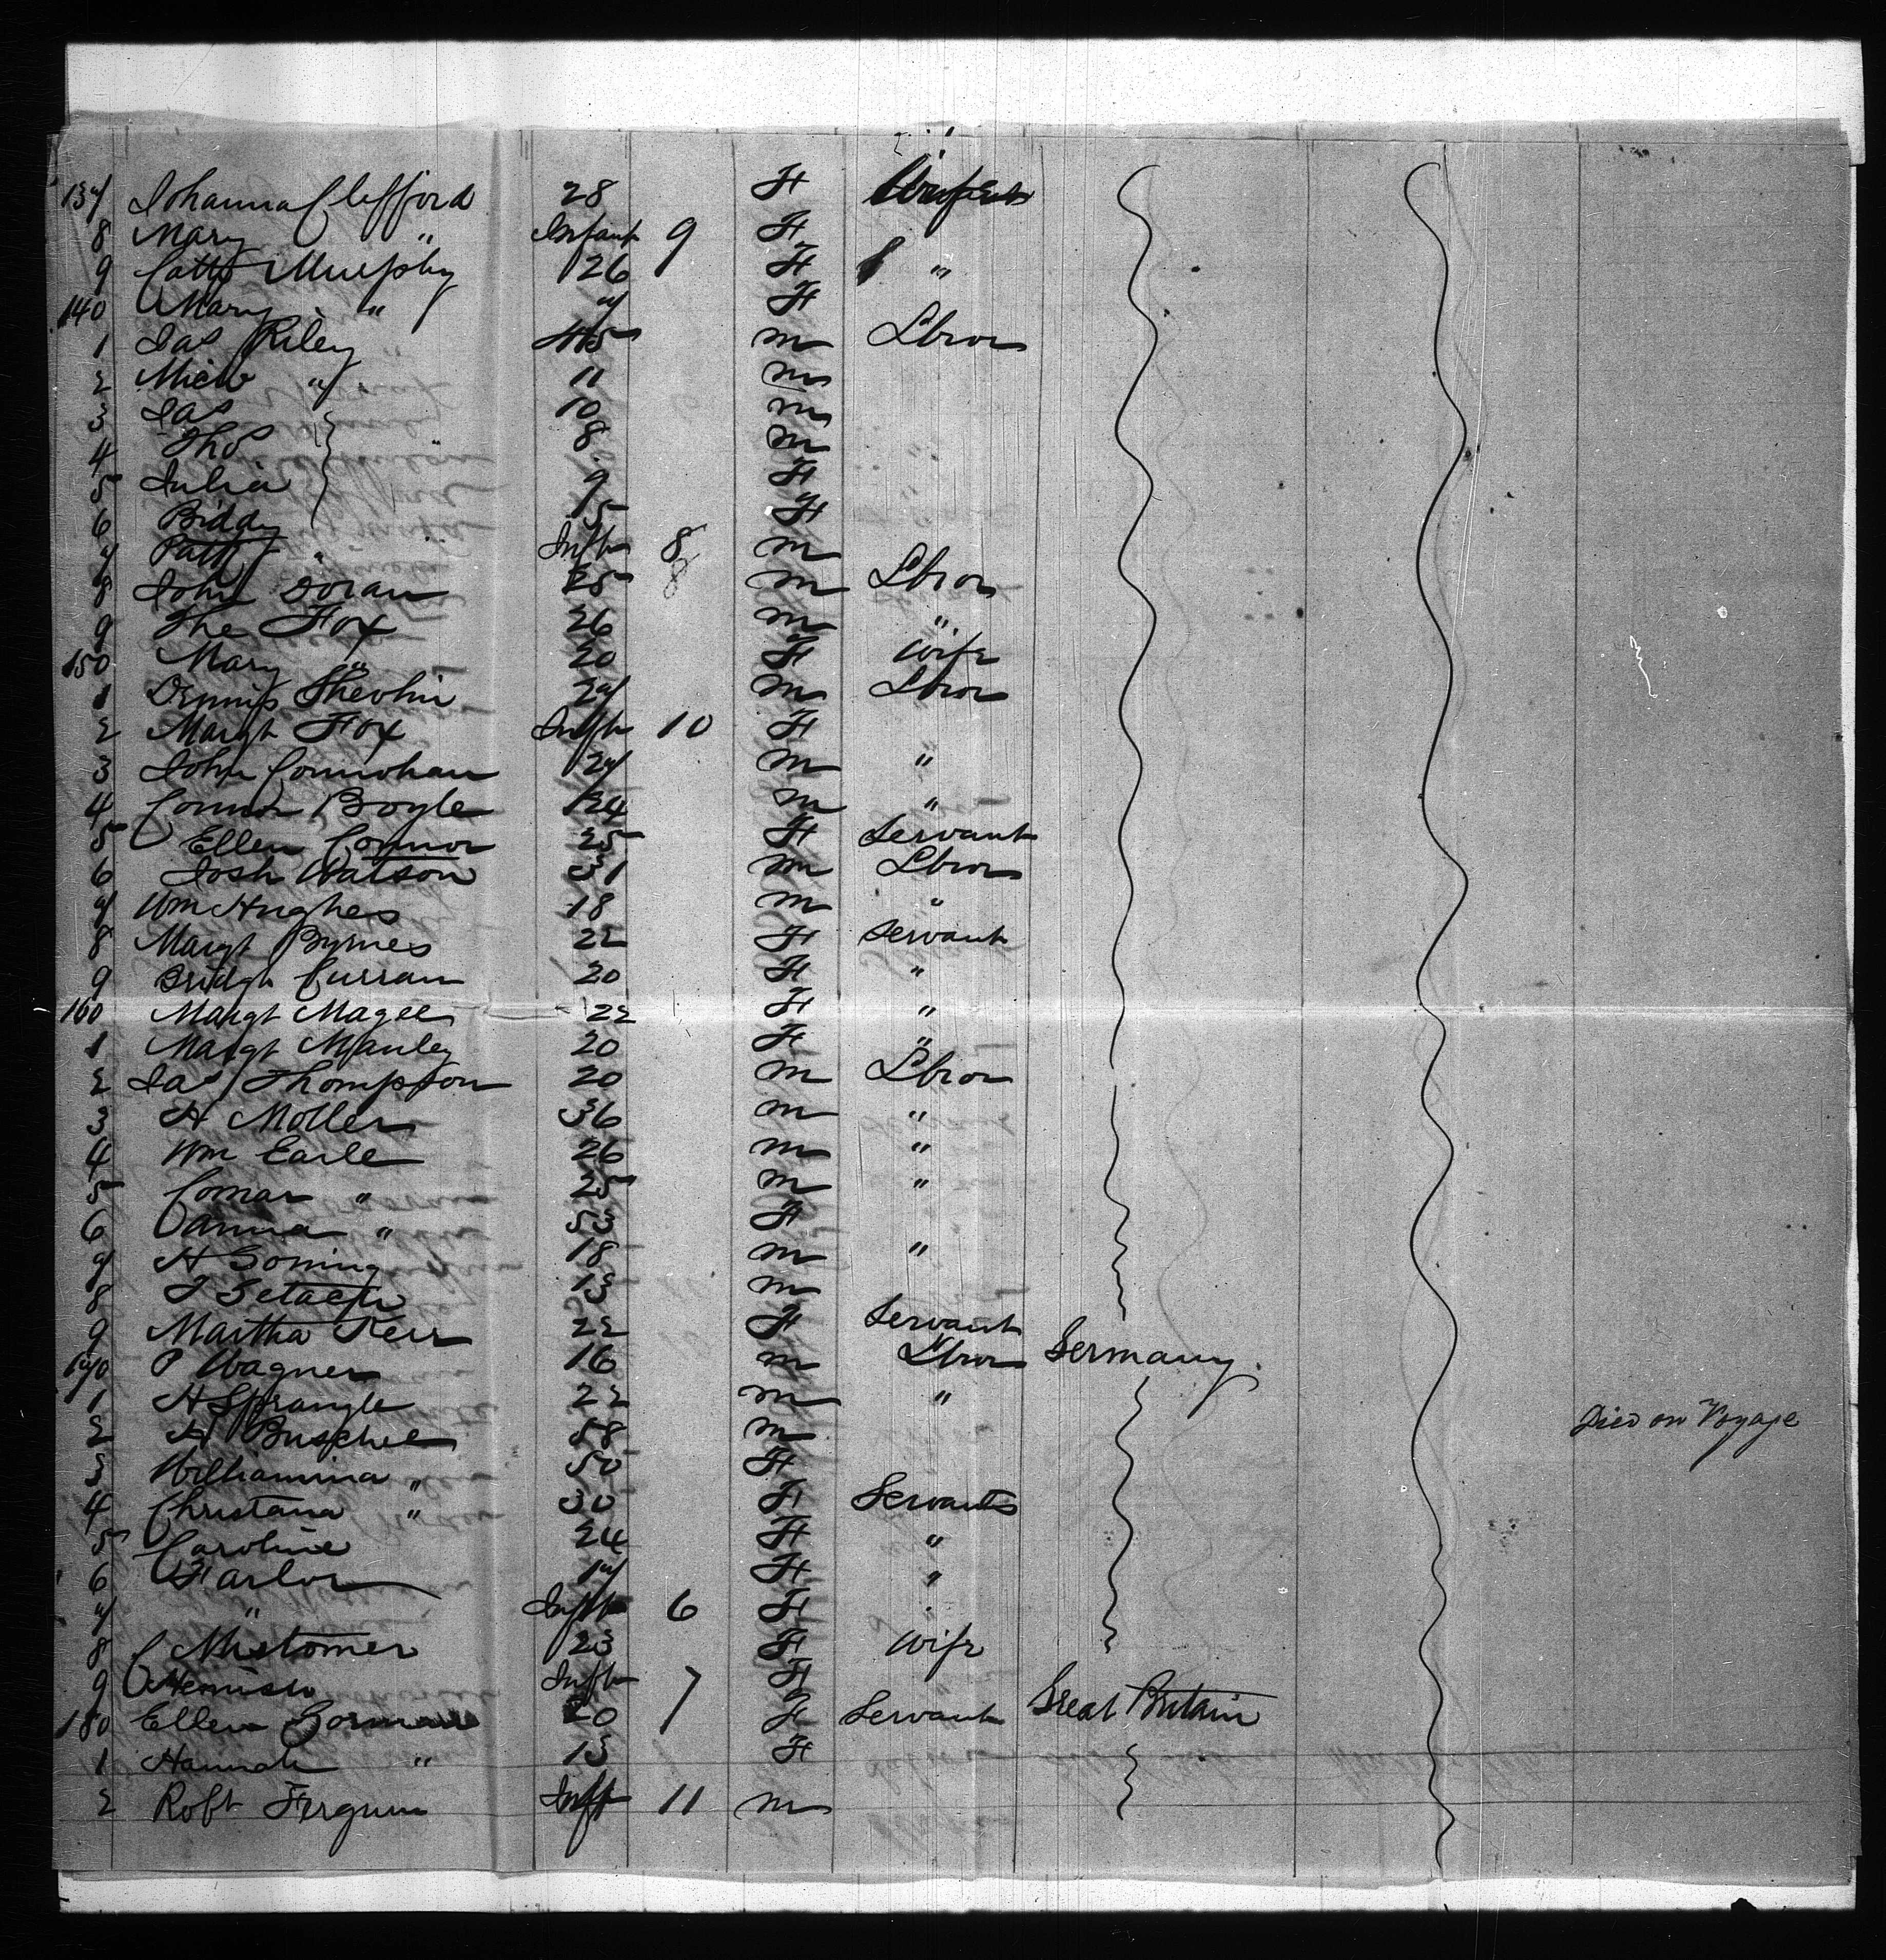 137 Johanna Clifford 28 F
8 Mary " Infant 9 F
9 Cath Murphy 26 F "
140 Mary " 7 F
1 Jas Riley 45 m Lbror
2 Micw " 11 m
3 Jas 10 m
4 Tho 8 m
5 Julia 9 F
6 Biddy 15 F
7 Patt " Inft 8 m
8 John Doran 25 m Lbror
9 Tho Fox 26 m "
150 Mary " 20 F Wife
1 Dennis Shevlin 27 m Lbror
2 Margt Fox Inft 10 F
3 John 27 m "
4 Connor Boyle 24 m "
5 Ellen Connor 25 F Servant
6 Josh Watson 31 m Lbror
7 Wm Hughes 18 m "
8 Margt Byrnes 22 F Servant
9 Bridgt Curran 20 F "
160 Margt Magee 22 F "
1 Margt Manley 20 F "
2 Jas Thompson 20 m Lbror
3 H Moller 36 m "
4 Wm Earle 26 m "
5 " 25 m "
6 Anna " 53 F
7 H 18 m "
8 13 m
9 Martha Kerr 22 F Servant
170 P Wagner 16 m Lbror Germany
1 H Sprangle 22 m "
2 H Buschel 58 m Died on Voyage
3 Wilhamina " 50 F
4 Christana " 30 F Servants
5 Caroline 24 F "
6 17 F "
7 " Inft 6 F "
8 Mistomer 23 F Wife
9 Inft 7 F
180 Ellen Gorman 20 F Servant Great Britain
1 Hannah " 13 F
2 Robt Inft 11 m